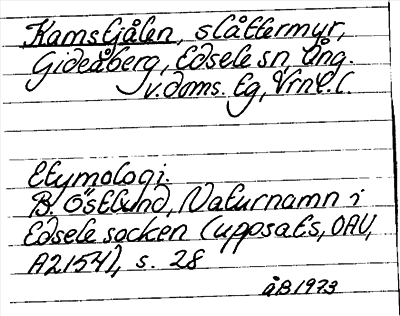 Kamstjålen, slåttermyr,
Gideåberg, Edsele sn, Ång.
v. doms. tg,
Etymologi.
B. Östlund, Naturnamn i
Edsele socken (uppsats, OAU,
A2154), s. 28
åB 1973